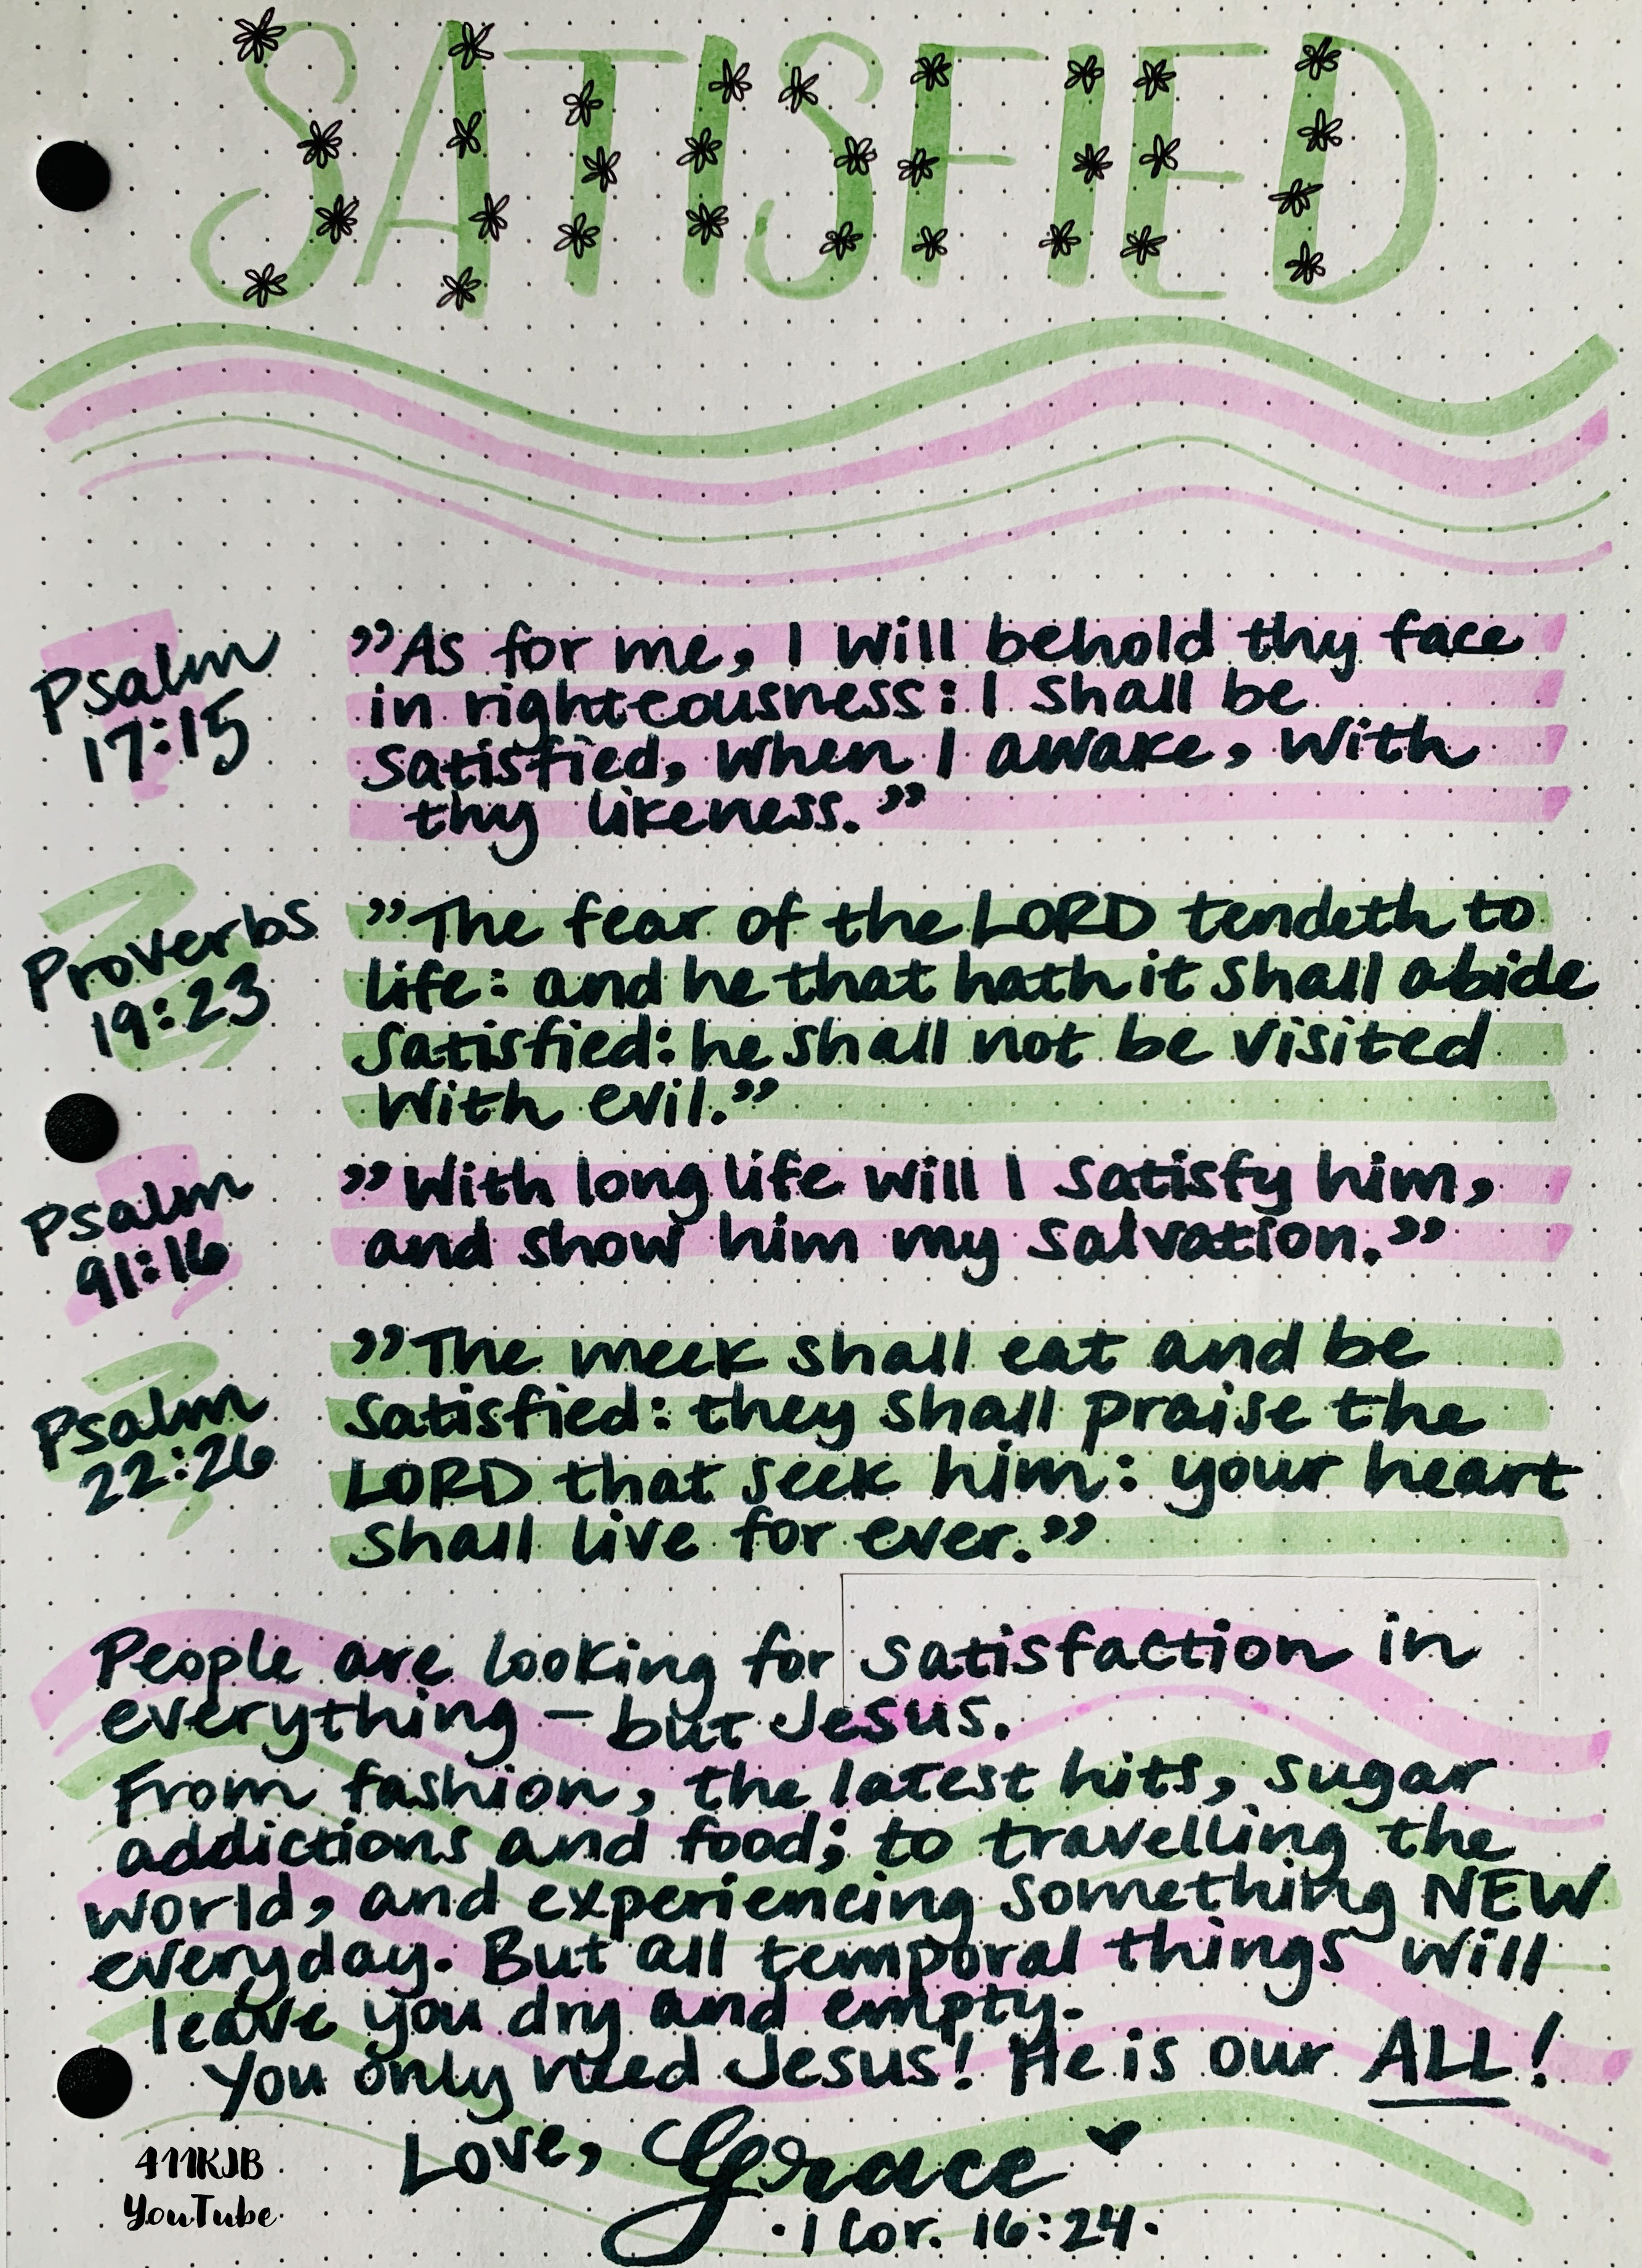 SATISFIED
Psalm
17:15
”As for me, I will behold thy face
in righteousness: I shall be
satisfied, when I awake, with
thy likeness.”
Proverbs
19:23
”The fear of the LORD tendeth to
life: and he that hath it shall abide
satisfied: he shall not be visited
with evil.”
Psalm
91:16
”With long life will I satisfy him,
and show him my salvation.”
Psalm
22:26
”The meek shall eat and be
satisfied: they shall praise the
LORD that seek him: your heart
shall live for ever.”
People are looking for satisfaction in
everything – but Jesus.
From fashion, the latest hits, sugar
addictions and food; to travelling the
world, and experiencing something NEW
everyday. But all temporal things will
leave you dry and empty.
You only need Jesus! He is our ALL!
Love, Grace
• 1 Cor. 16:24 •
411KJB
YouTube